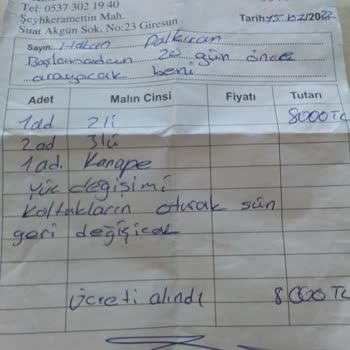 Tel: 0537 302 19 40
Şeyhkeramettin Mah.
Suat Akgün Sok. No:23 Giresun
Tarih: /20
Sayın: Hakan
Başlamadan gün önce
arayacak beni
Adet Malın Cinsi Fiyatı Tutarı
1ad 2li 8000 TL
2ad 3lü
1ad. Kanape
yüz değişimi
koltukların oturak sün
geri değişicek
ücreti alındı 8000 TL